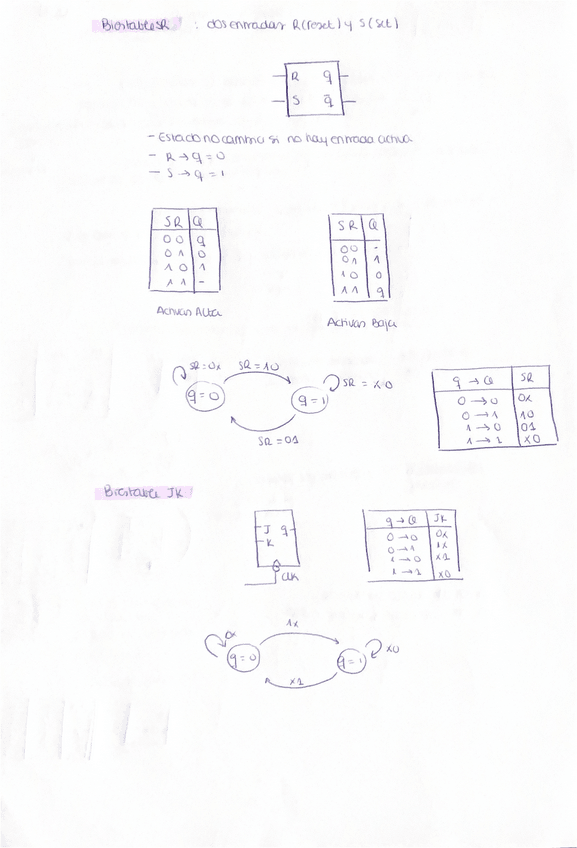 Biestable SR : dos entradas R(reset) y S(set)
R q
S q̅
- Estado no cambia si no hay entrada activa
- R → q = 0
- S → q = 1
SR Q
00 q
01 0
10 1
11 -
Activas Alta
SR Q
00 -
01 1
10 0
11 q
Activas Baja
SR=0x
SR=10
q=0
q=1
SR = x0
SR=01
q → Q SR
0 → 0 0x
0 → 1 10
1 → 0 01
1 → 1 x0
Biestable JK
J q
K
Clk
q → Q JK
0 → 0 0x
0 → 1 1x
1 → 0 x1
1 → 1 x0
0x
1x
q=0
q=1
x0
x1